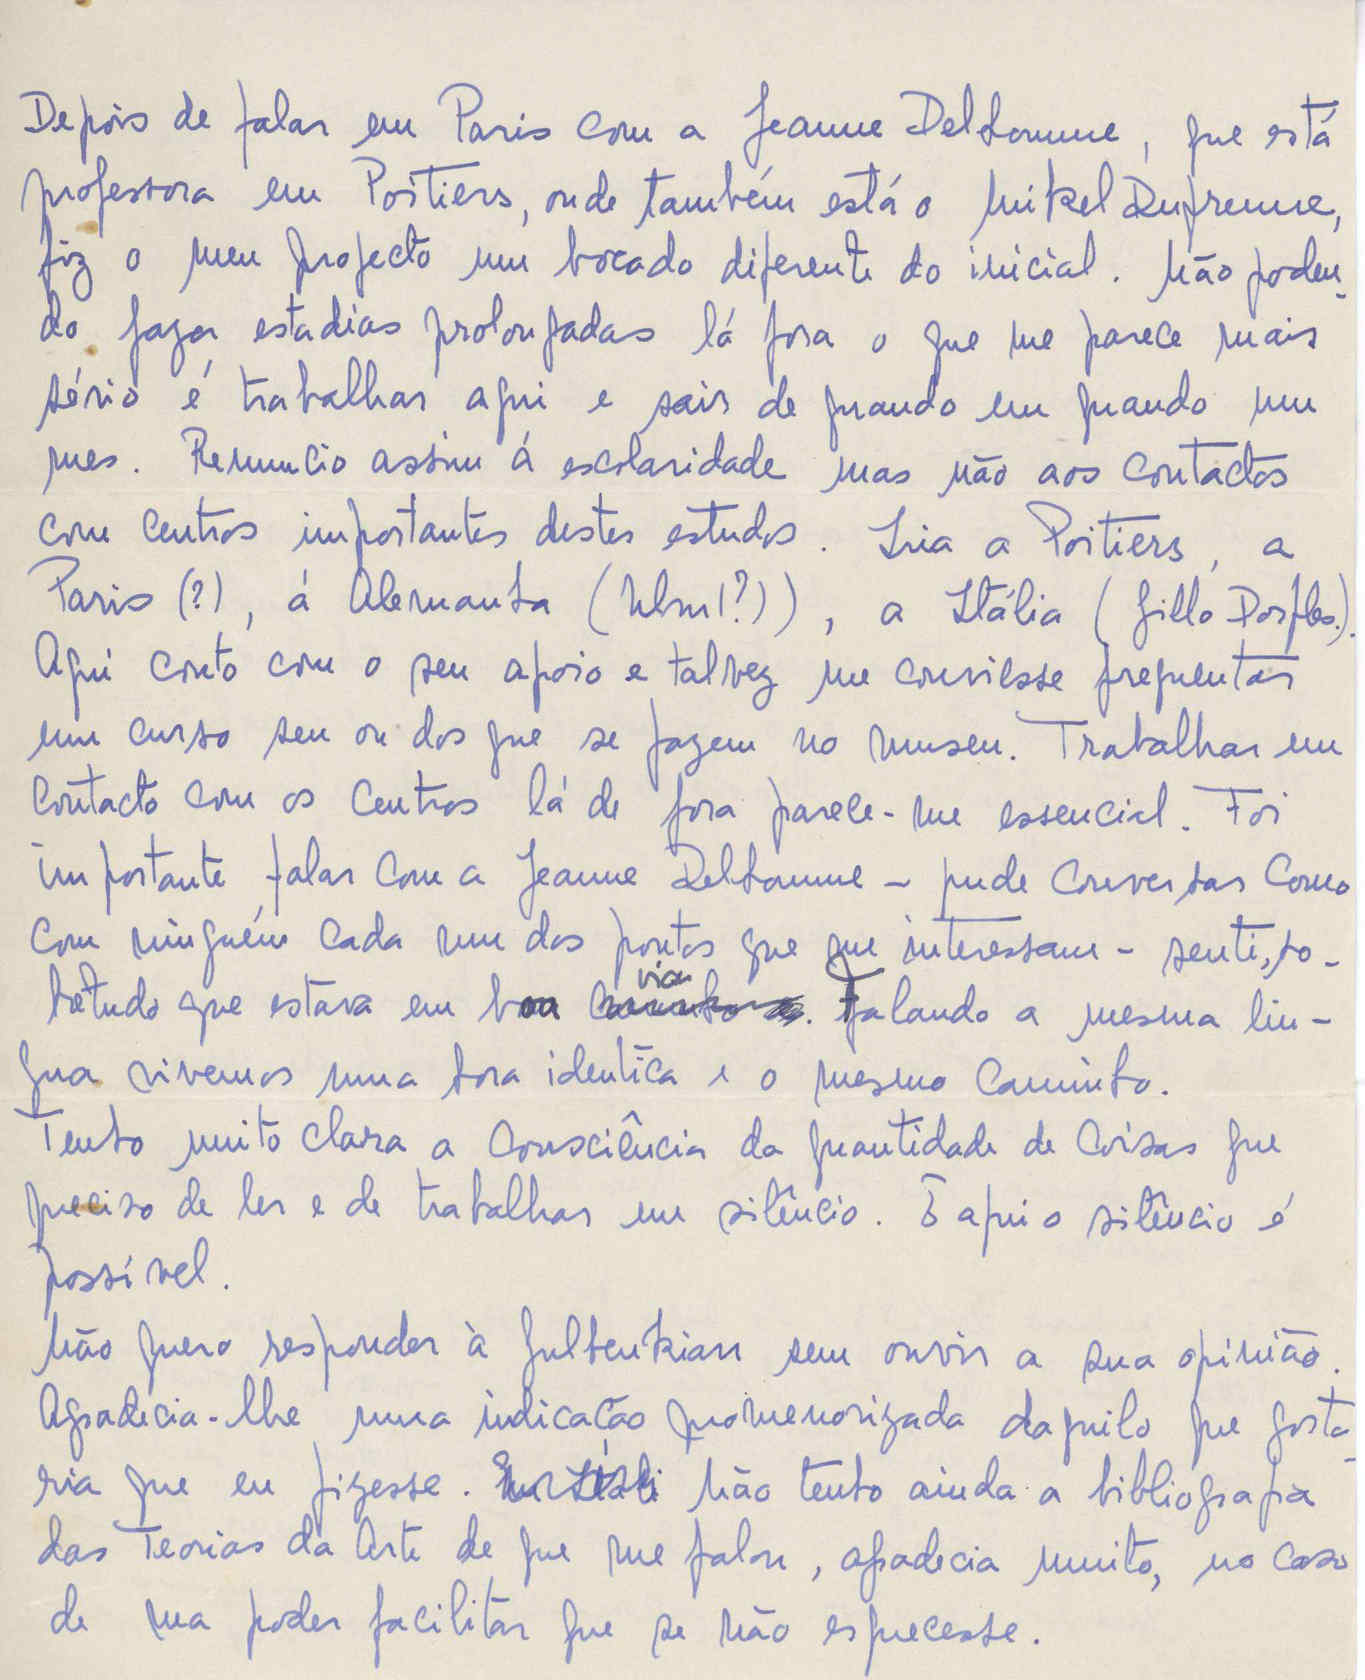 Depois de falar em Paris com a Jeanne Delhomme, que está
professora em Poitiers, onde também está o Mikel Dufrenne,
fiz o meu projecto um bocado diferente do inicial. Não poden-
do fazer estadias prolongadas lá fora o que me parece mais
sério é trabalhar aqui e sair de quando em quando um
mes. Renuncio assim á escolaridade mas não aos contactos
com centros importantes destes estudos. Iria a Poitiers, a
Paris (?), á Alemanha (Ulm(?)), a Itália (Gillo Dorfles.).
Aqui conto com o seu apoio e talvez me conviesse frequentar
um curso seu ou dos que se fazem no museu. Trabalhar em
contacto com os centros lá de fora parece-me essencial. Foi
importante falar com a Jeanne Delhomme - pude conversar como
com ninguém cada um dos pontos que me interessam - senti, so-
bretudo que estava em boa via. Falando a mesma lin-
gua vivemos uma hora identica e o mesmo caminho.
Tenho muito clara a consciência da quantidade de coisas que
preciso de ler e de trabalhar em silêncio. E aqui o silêncio é
possível.
Não quero responder à Gulbenkian sem ouvir a sua opinião.
Agradecia-lhe uma indicação promenorizada daquilo que gosta-
ria que eu fizesse. Não tenho ainda a bibliografia
das Teorias da Arte de que me falou, agradecia muito, no caso
de ma poder facilitar que se não esquecesse.